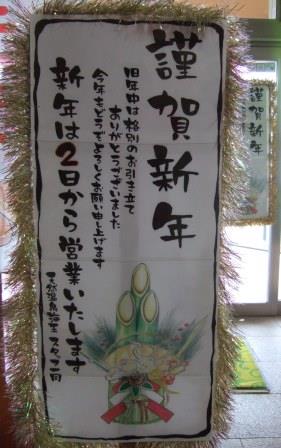 謹賀新年
旧年中は格別のお引き立て
ありがとうございました
今年もどうぞよろしくお願い申し上げます
新年は2日から営業いたします
天然温泉海王 スタッフ一同
謹賀新年